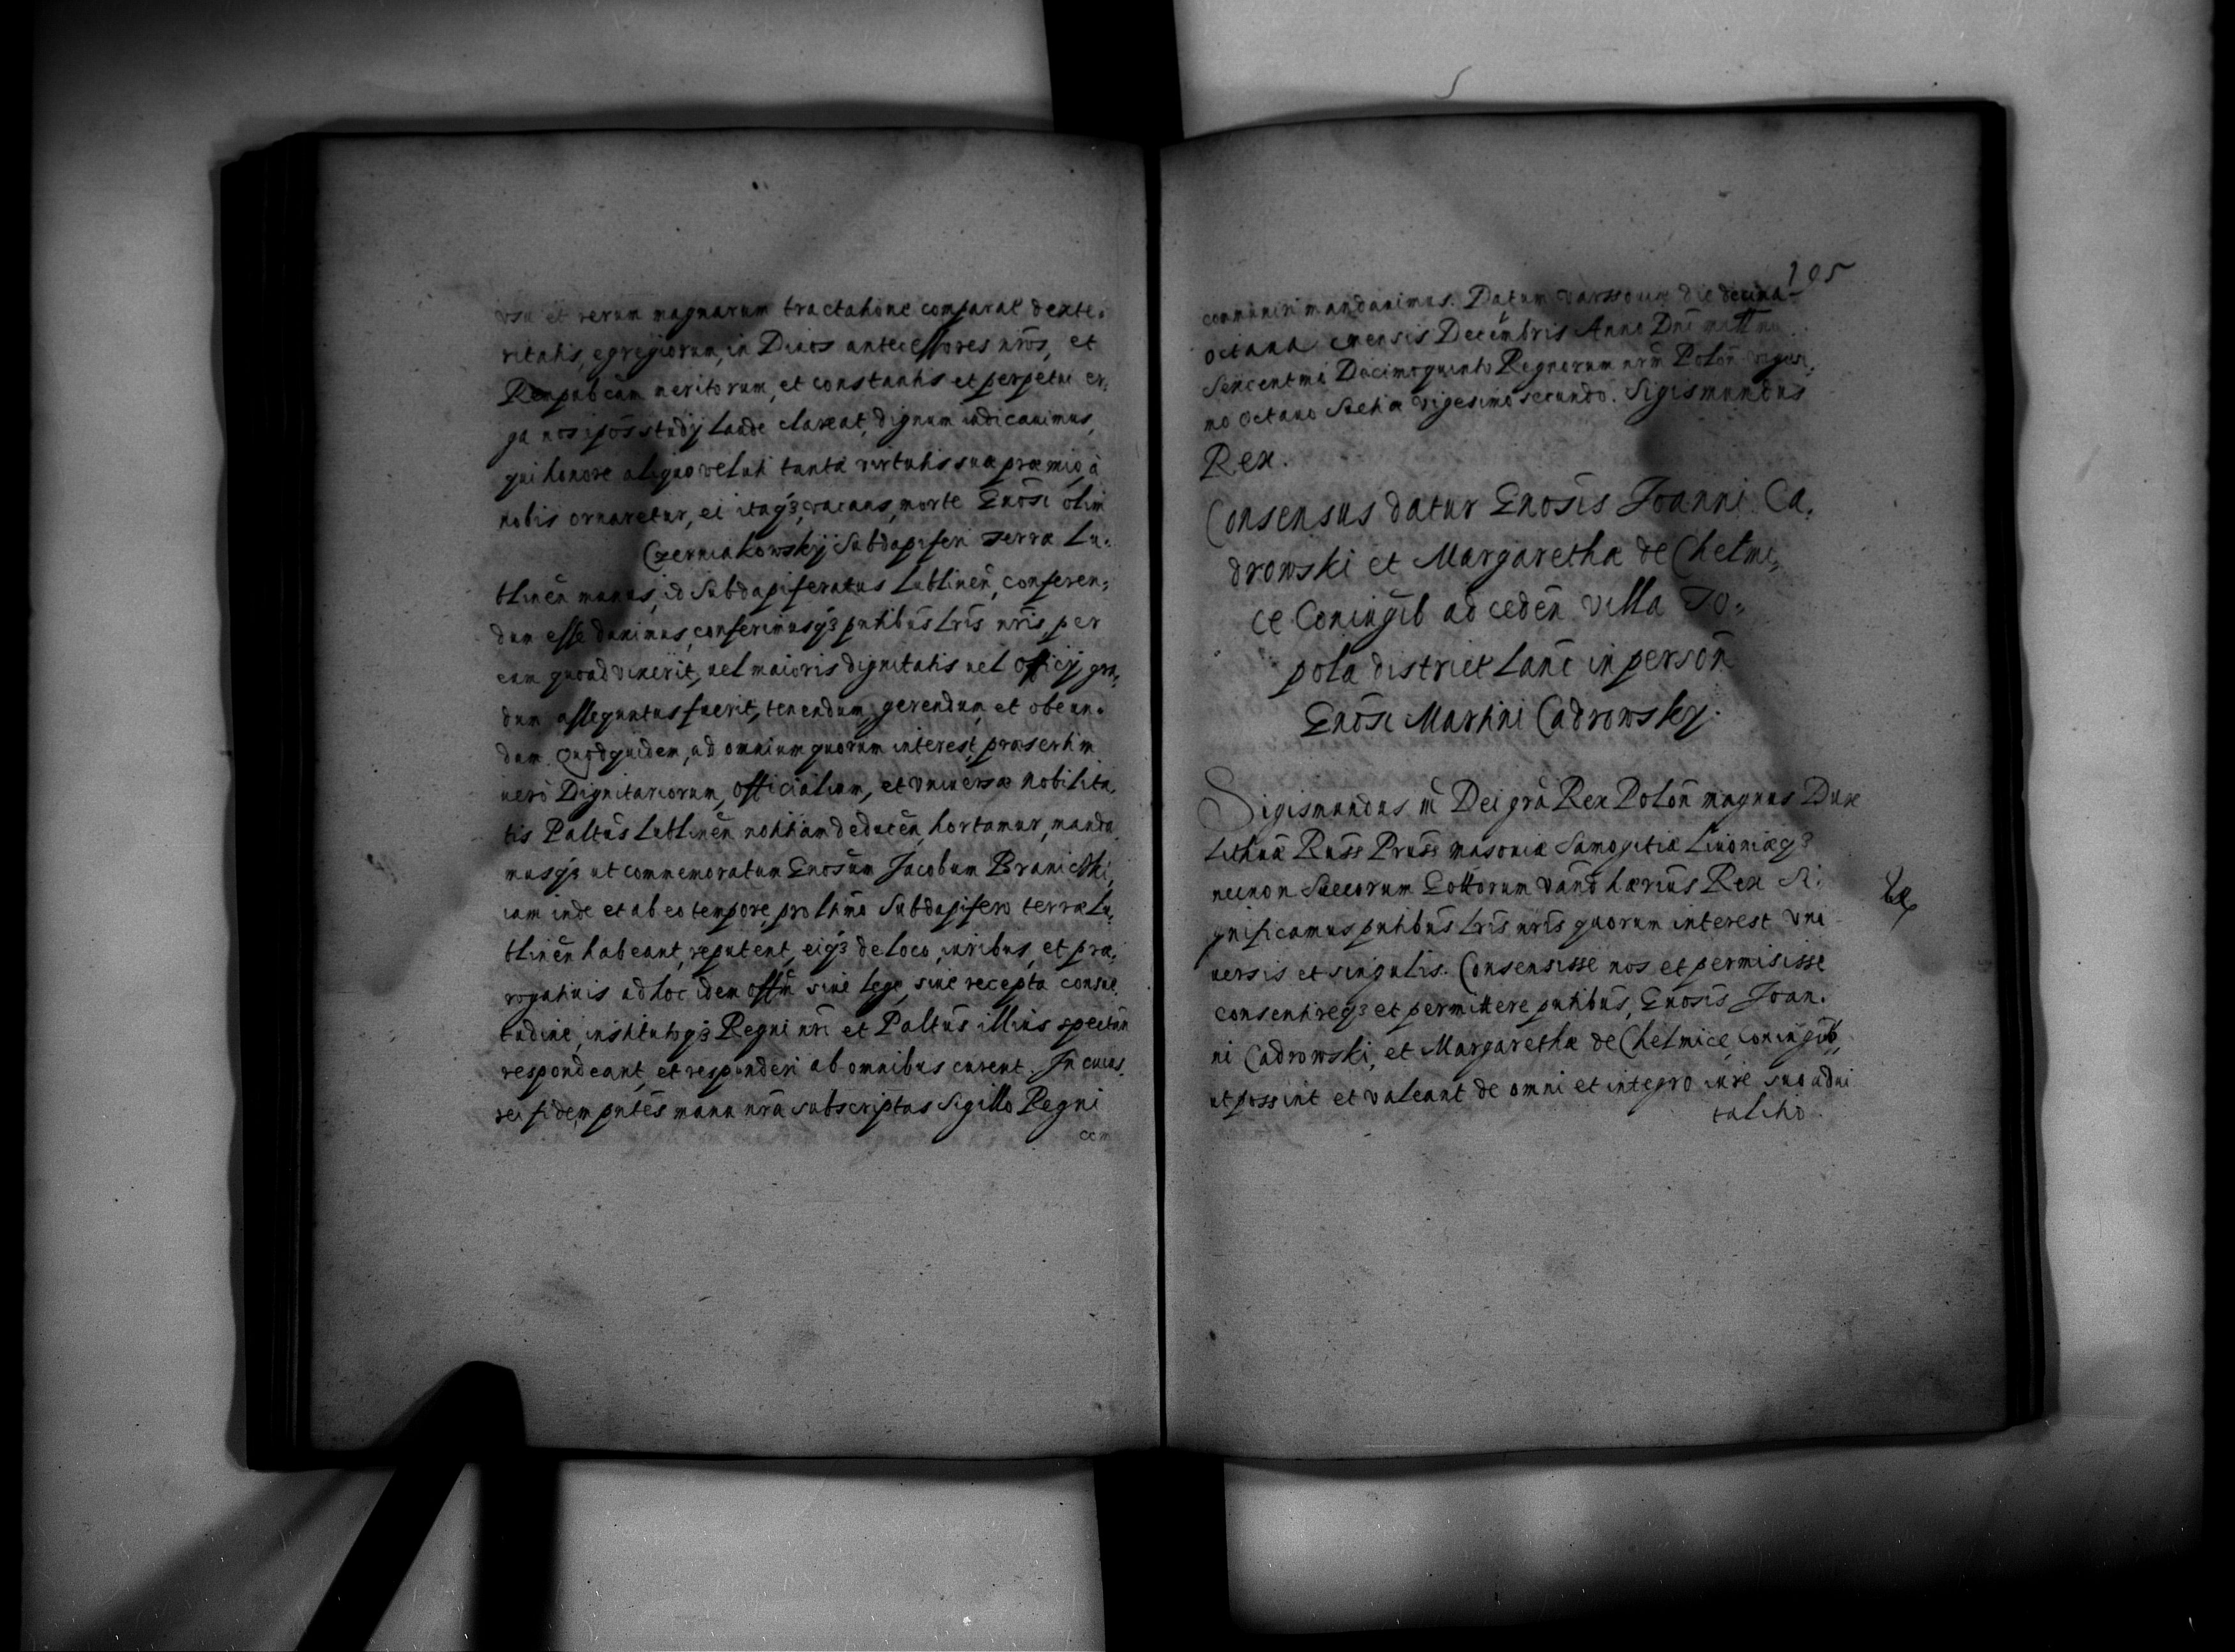 vsu et rerum magnarum tractatione comparat dexte,
ritatis, egregiorum, in Diuos antecessores nros, et
Rempubcam meritorum, et constantis et perpetui er,
ga nos ipos studij laude clareat, dignum iudicauimus,
qui honore aliquo veluti tanta virtutis suæ præmio, à
nobis ornaretur, ei itaq3, vacans, morte Gnosi olim
Czerniakowskij Subdapiferi Terræ Lu,
blinen munus, id Subdapiferatus Lublinen, conferen,
dum esse duximus, conferimusq3 pntibus lris nris, per
eum quoad vixerit, uel maioris dignitatis uel Officij gra,
dum assequutus fuerit, tenendum, gerendum, et obeun,
dum. Quodquidem, ad omnium quorum interest, præsertim
uero Dignitariorum, officialium, et vniuersæ Nobilita,
tis Paltus Lublinen notitiam deducen, hortamur, manda
musq3 ut commemoratum Gnosum Jacobum Branicki,
iam inde et ab eo tempore, pro ltimo Subdapifero terræ Lu,
blinen habeant, reputent, eiq3 de loco, iuribus, et præ,
rogatiuis ad hoc idem offm siue lege, siue recepta consue,
tudine, institutoq3 Regni nri et Paltus illius spectan
respondeant, et responderi ab omnibus curent. In cuius
rei fidem pntes manu nra subscriptas Sigillo Regni
com
105
communiri mandauimus. Datum Varssouiæ die decima
octaua mensis Decembris Anno Dni millmo
Sexcentmo Decimoquinto Regnorum nrm Polon vigesi,
mo octauo Sueticæ vigesimo secundo. Sigismundus
Rex.
Consensus datur Gnosis Joanni Ca,
drowski et Margarethæ de Chelmi,
ce Coniugib ad ceden villa To,
pola district Lanc in person
Gnosi Martini Cadrowskj.
Sigismundus III Dei gra Rex Polon magnus Dux
Lithuæ Russ Pruss Masouiæ Samogitiæ Liuoniæq3
necnon Suecorum Gottorum Vand hærius Rex Si,
gnificamus pntibus lris nris quorum interest vni
uersis et singulis. Consensisse nos et permisisse
consentireq3 et permittere pntibus, Gnosis Joan,
ni Cadrowski, et Margarethæ de Chelmice, coniugib,
ut possint et valeant de omni et integro iure suo adui
talitio